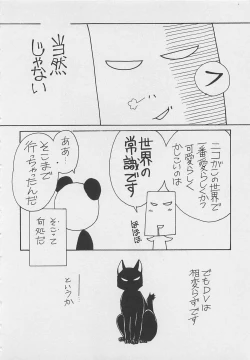 当然
じゃない
ニコがこの世界で
一番愛らしくか？
可愛らしく
かしこいのは
世界の
常識です
ほほほ
ああ…
そこまで
行っちゃったんだ
そこって
何処だ
というか
でもDVは
相変らずです